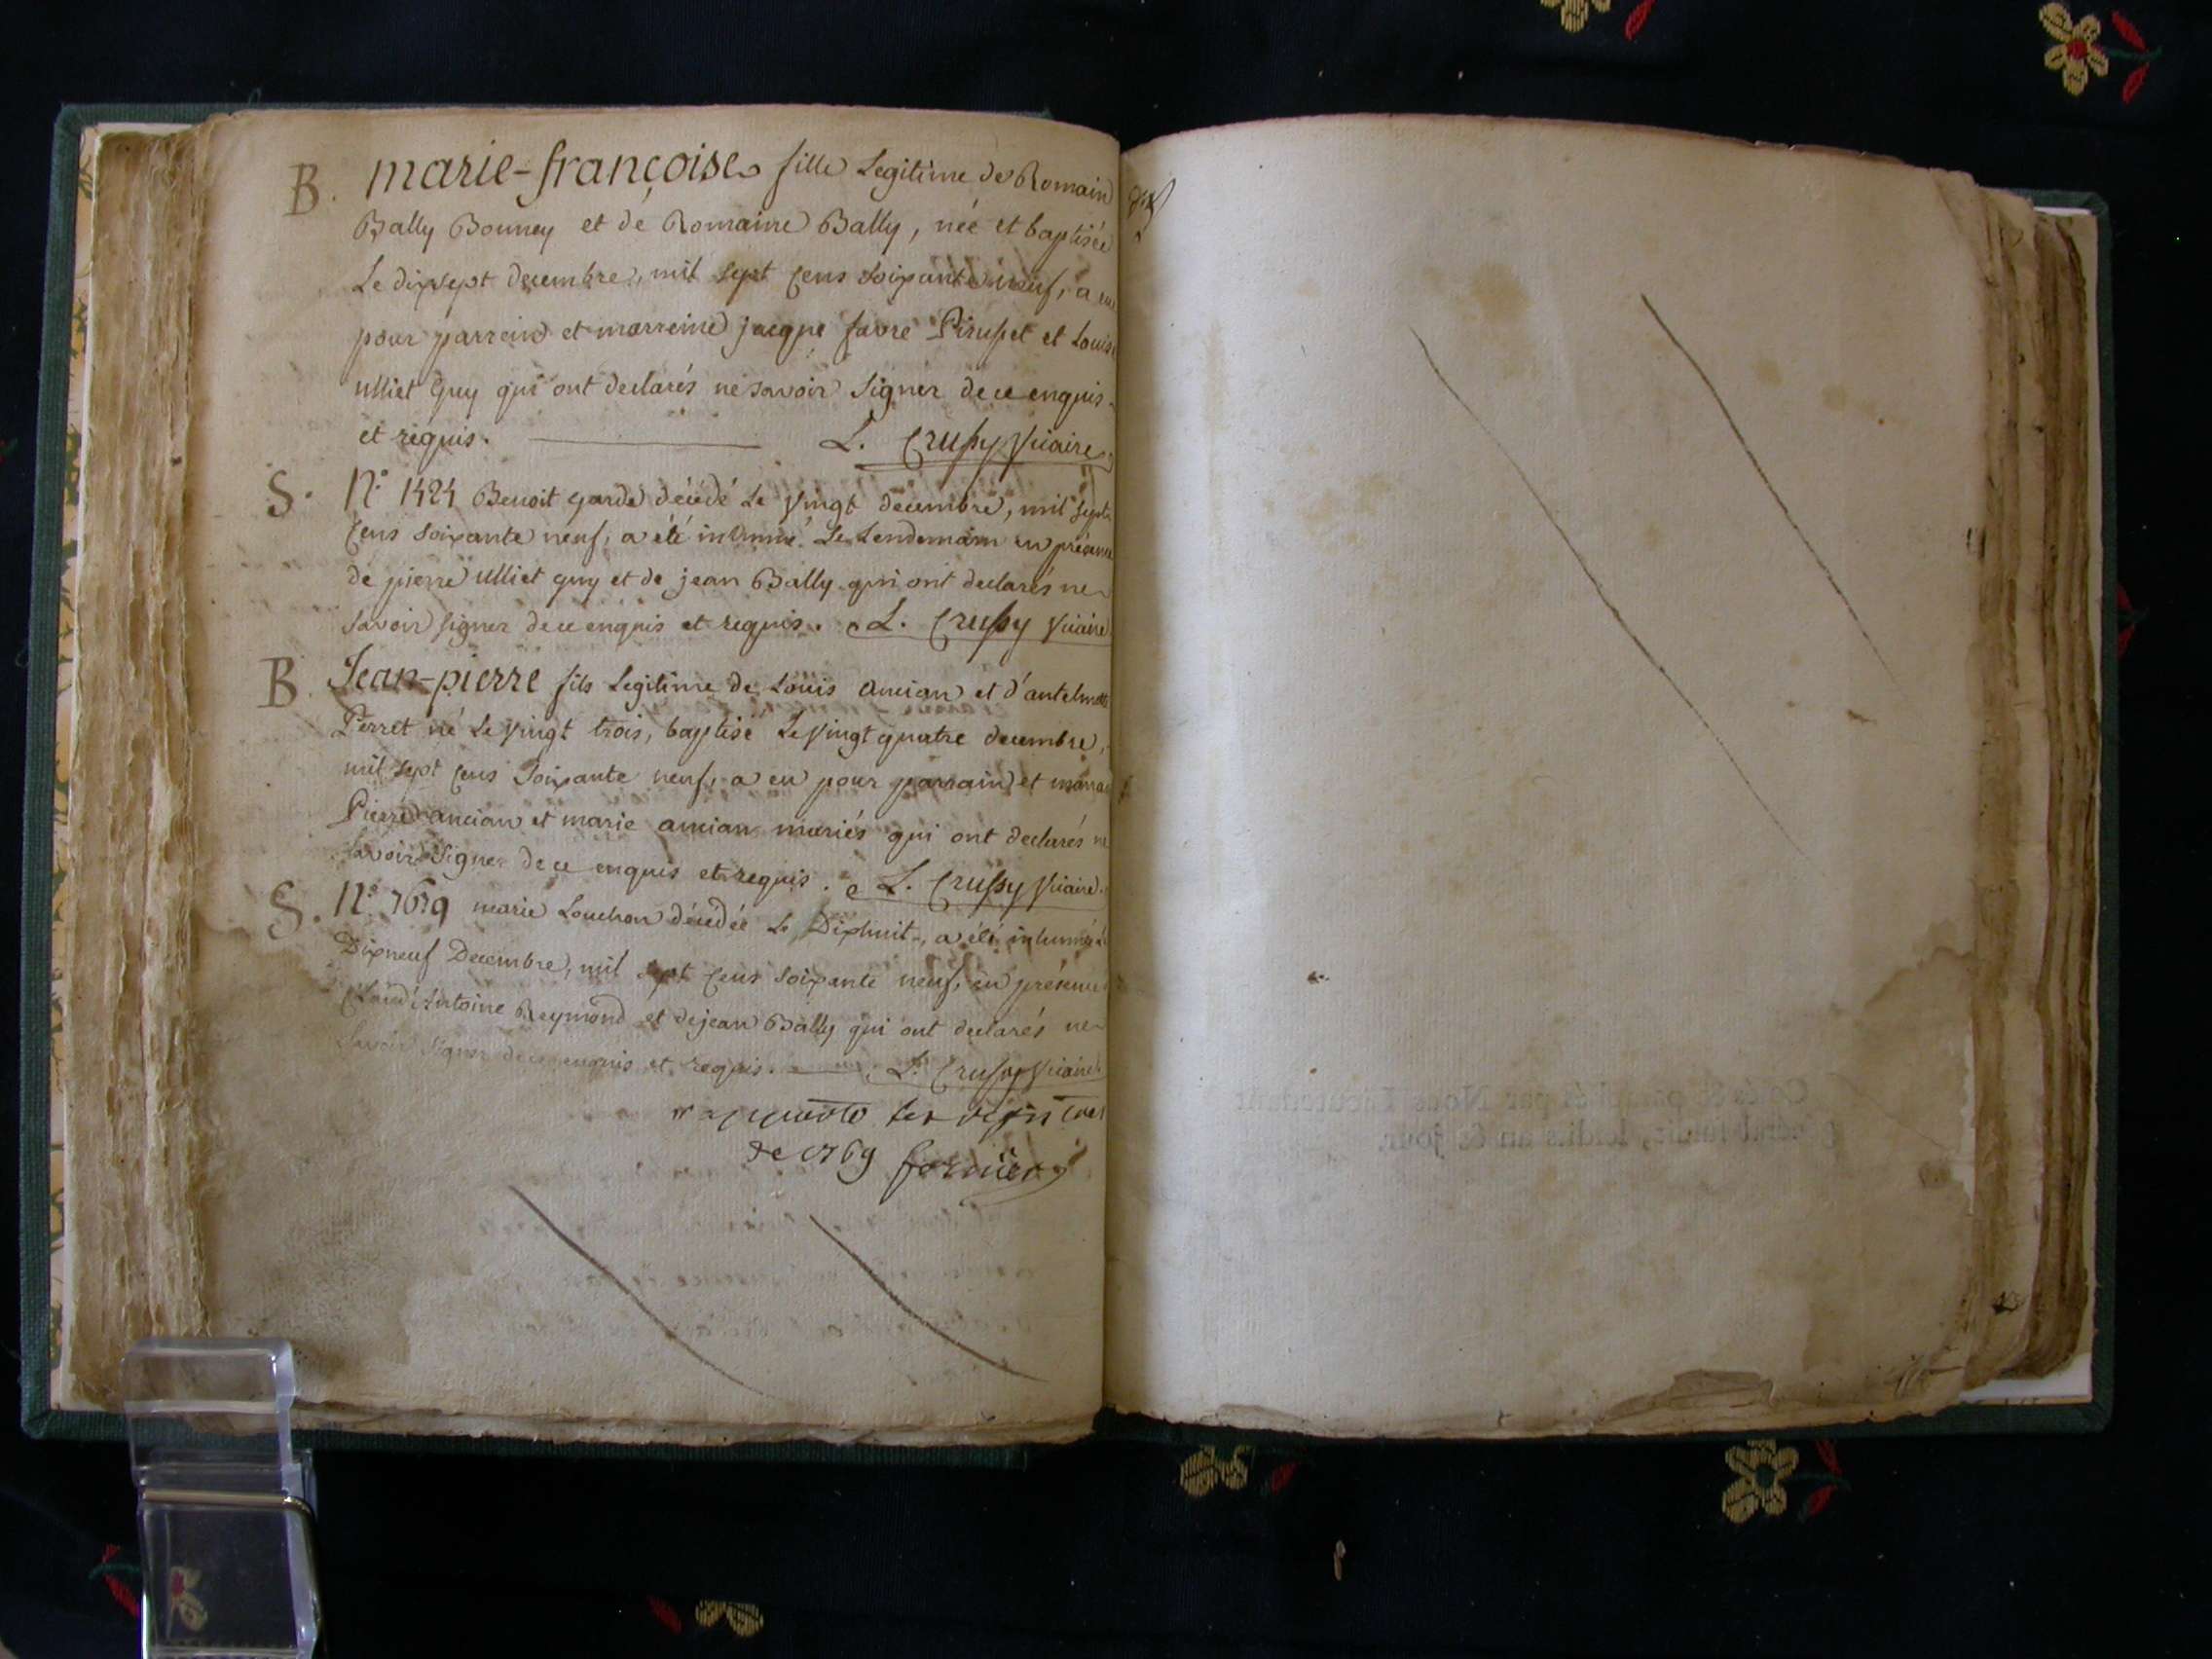 B. marie-françoise fille Legitime de Romain
Bally Bonney et de Romaine Bally, née et baptisée
Le dixsept decembre, mil sept cens soixante neuf, a eu
pour parrein et marreine jacque favre Pirusset et Louise
ulliet Guy qui ont declarés ne savoir signer de ce enquis
et requis. L. Crussy Vicaire
S. N.° 1424 Benoit garde décédé Le vingt decembre, mil sept
cens soixante neuf, a été inhumé Le Lendemain en présence
de pierre ulliet guy et de jean Bally qui ont declarés ne
savoir signer de ce enquis et requis. L. Crussy Vicaire
B. Jean-pierre fils Legitime de Louis ancian et d'antelmette
Perret né Le vingt trois, baptisé Le vingt quatre decembre,
mil sept cens soixante neuf, a eu pour parrain et
Pierre ancian et marie ancian mariés qui ont declarés ne
savoir signer de ce enquis et requis. L. Crussy Vicaire
S. N.° marie Louchon décédée Le Dixhuit, a été inhumée Le
Dixneuf Decembre, mil sept cens soixante neuf, en présence
Claude Antoine Reymond et de jean Bally qui ont declarés ne
savoir signer de ce enquis et requis. L. Crussy Vicaire
de 1769